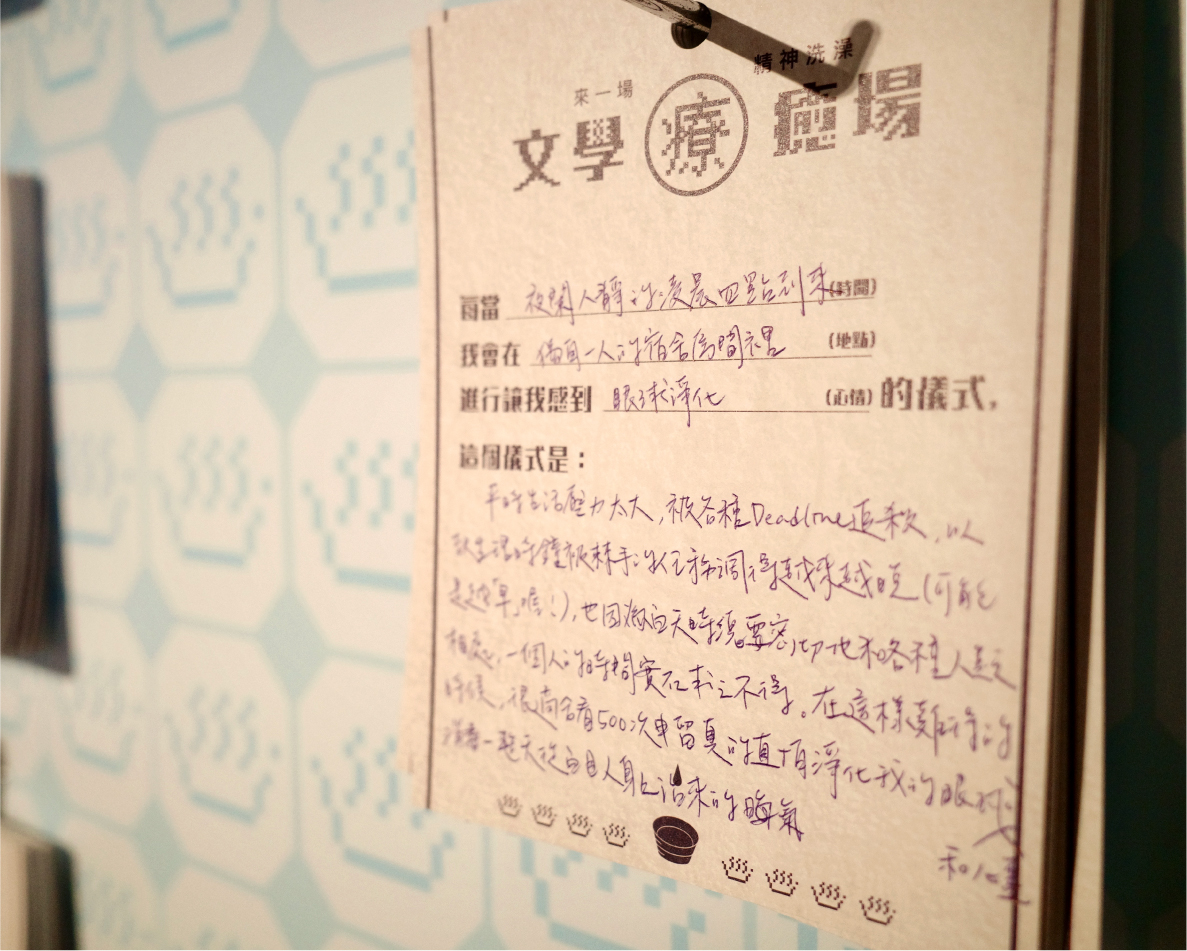 精神洗澡
來一場
文學療癒場
每當 夜闌人靜的凌晨四點到來 (時間)
我會在 僅有一人的宿舍房間裡 (地點)
進行讓我感到 眼球淨化 (心情) 的儀式,
這個儀式是:
平時生活壓力太大,被各種Deadline追殺,以
致生理時鐘被棘手的工作調得越來越晚(可能也
是越早喔!),也因為白天時總要密切地和各種人類
相處,一個人的時間實在求之不得。在這樣難得的
時候,很適合看500次申留真的直拍淨化我的眼球
演一整天從白目人身上沾來的晦氣
和心靈